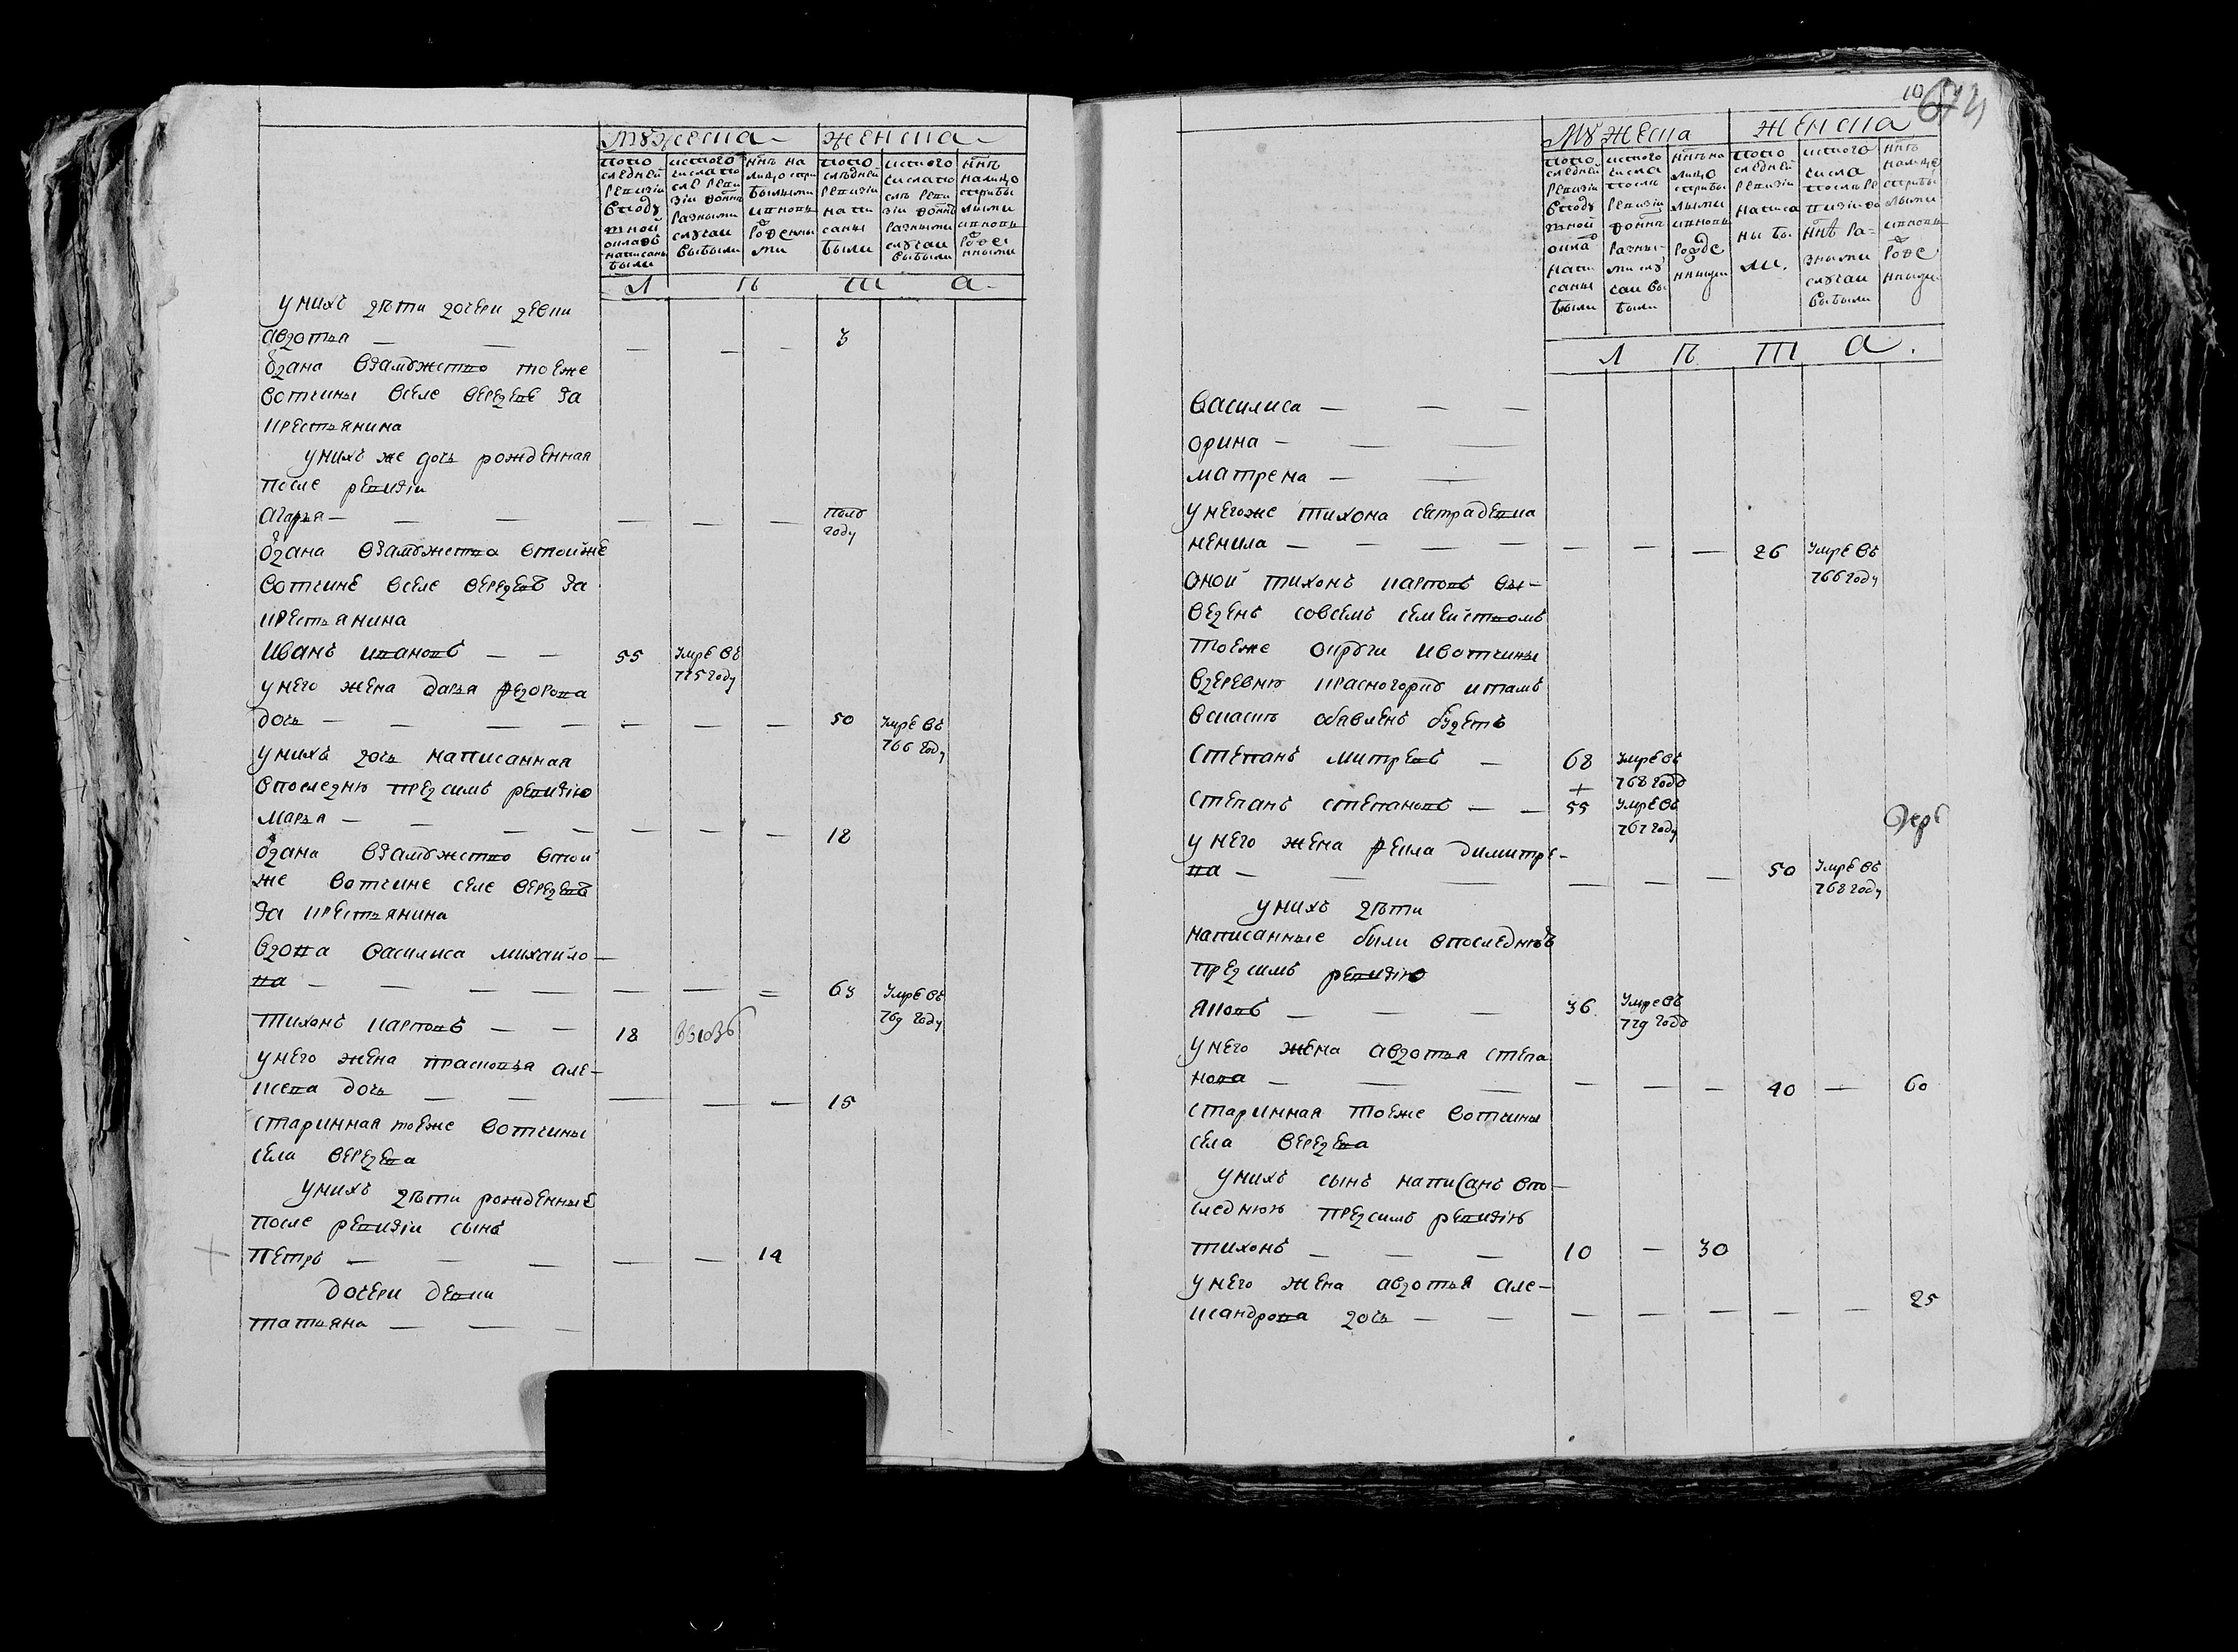 мужеска женска
попо следней ревизiи вподу шной окладъ написаны были
истого числа по сле реви зiи доннѣ разными случаи выбыли
ннѣ на лицо спри былыми ивновь рожденны ми
попо слѣдней ревизiи напи саны были
истого числа по слѣ реви зiи доннѣ разными случаи выбыли
ннѣ налицо сприбы лыми ивновь рожде нными
л ѣ т а
унихъ дѣти дочери девки
авдотья — — — — — 3
ѿдана взамужство тоеже
вотчины вселе вередеве за
крестьянина
унихъ же дочь рожденная
после ревизiи
агарья — — — — — — полъ году
ѿдана взамужство втойже
вотчине вселе вередевѣ за
крестьянина
иванъ ивановъ — — 55 умре въ 775 году
унего жена дарья федорова
дочь — — — — — — — 50 умре въ 766 году
унихъ дочь написанная
впоследнюю предсимъ ревизiю
марья — — — — — — — 18
ѿдана взамужство втой
же вотчине селе вередевѣ
за крестьянина
вдова василиса михайло—
ва — — — — — — — 63 умре въ 769 году
тихонъ карповъ — — 18
унего жена прасковья але—
ксева дочь — — — — — 15
старинная тоеже вотчины
села вередева
унихъ дѣти рожденные
после ревизiи сынъ
петръ — — — — — 14
дочери девки
татьяна — — —
674
мужеска женска
попо следней ревизiи вподу шной окла напи саны были
истого числа послѣ ревизiи доннѣ разны— ми слу чаи вы были
ннѣ на лицо сприбы лыми ивновь рожде нными
попо следней ревизiи написа ны бы ли.
истого числа послѣ ре визiи до ннѣ ра= зными случаи выбыли
ннѣ налицо сприбы лыми ивновь рожде нными
л ѣ т а.
василиса — — —
орина — — —
матрена — —
унегоже тихона сестра девка
ненила — — — — — — — 26 умре въ 766 году
оной тихонъ карповъ вы—
веденъ совсемъ семействомъ
тоеже округи ивотчины
вдеревню красногорку итамъ
вскаску обявленъ будетъ
степанъ митревъ — 68 умре въ 768 году
+
степанъ степановъ — — 55 умре въ 767 году
унего жена фекла димитре—
ва — — — — — — 50 умре въ 768 году
унихъ дѣти
написанные были впоследнюю
предсимъ ревизiю
яковъ — — — 36 умре въ 779 году
унего жена авдотья степа
нова — — — — — — 40 — 60
старинная тоеже вотчины
села вередева
унихъ сынъ написанъ впо—
следнюю предсимъ ревизiю
тихонъ — — — 10 — 30
унего жена авдотья але—
ксандрова дочь — — — — — — — 25